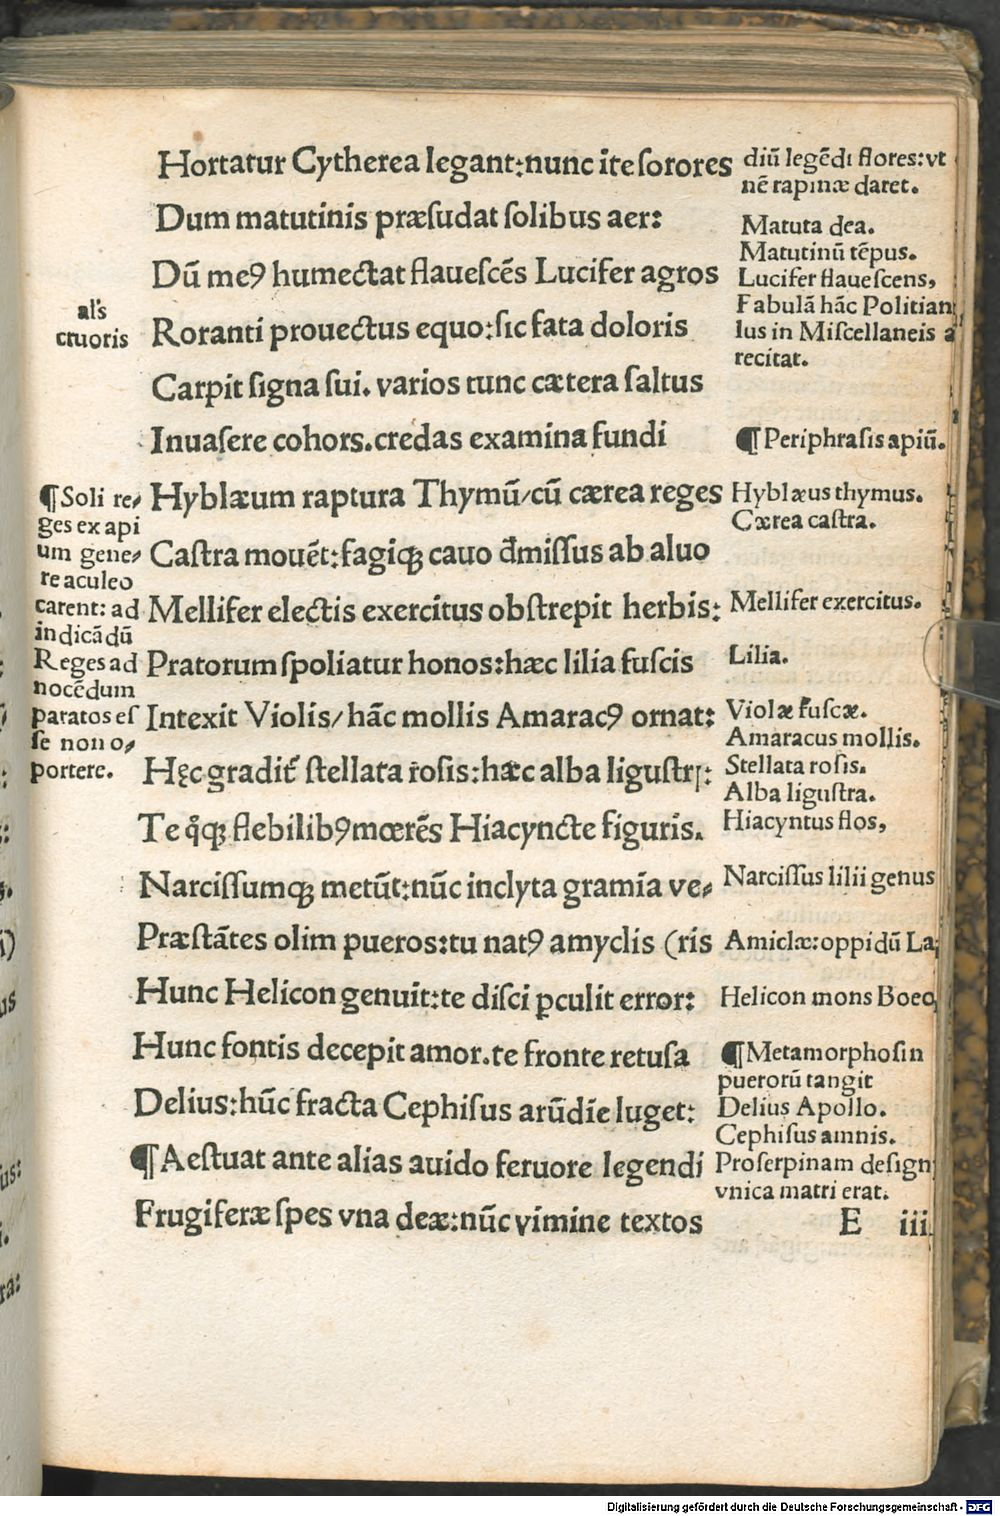 Hortatur Cytherea legant:nunc ite sorores
Dum matutinis præsudat solibus aer:
Dū meꝰ humectat flauescēs Lucifer agros
Roranti prouectus equo:sic fata doloris
Carpit signa sui. varios tunc cætera saltus
Inuasere cohors.credas examina fundi
Hyblæum raptura Thymū/cū cærea reges
Castra mouēt:fagiqꝫ cauo đmissus ab aluo
Mellifer electis exercitus obstrepit herbis:
Pratorum spoliatur honos:hæc lilia fuscis
Intexit Violis/hāc mollis Amaracꝰ ornat:
Hęc gradit᷑ stellata rosis:hæc alba ligustrꝭ:
Te qͦqꝫ flebilibꝰmœrēs Hiacyncte figuris.
Narcissumqꝫ metūt:nūc inclyta gramīa ve⸗
Præstātes olim pueros:tu natꝰ amyclis (ris
Hunc Helicon genuit:te disci ꝑculit error:
Hunc fontis decepit amor.te fronte retusa
Delius:hūc fracta Cephisus arūdīe luget:
¶Aestuat ante alias auido feruore legendi
Frugiferæ spes vna deæ:nūc vimine textos
al's
cruoris
¶Soli re⸗
ges ex api
um gene⸗
re aculeo
carent: ad
indicādū
Reges ad
nocēdum
paratos es
se non o⸗
portere.
diū legēdi flores:vt
nē rapinæ daret.
Matuta dea.
Matutinū tēpus.
Lucifer flauescens,
Fabulā hāc Politian
lus in Miscellaneis a
recitat.
¶Periphrasis apiū.
Hyblæus thymus.
Cærea castra.
Mellifer exercitus.
Lilia.
Violæ fuscæ.
Amaracus mollis.
Stellata rosis.
Alba ligustra.
Hiacyntus flos,
Narcissus lilii genus
Amiclæ:oppidū La⸗
Helicon mons Boeo
¶Metamorphosin
puerorū tangit
Delius Apollo.
Cephisus amnis.
Proserpinam design
vnica matri erat.
E iii.
Digitalisierung gefördert durch die Deutsche Forschungsgemeinschaft - DFG